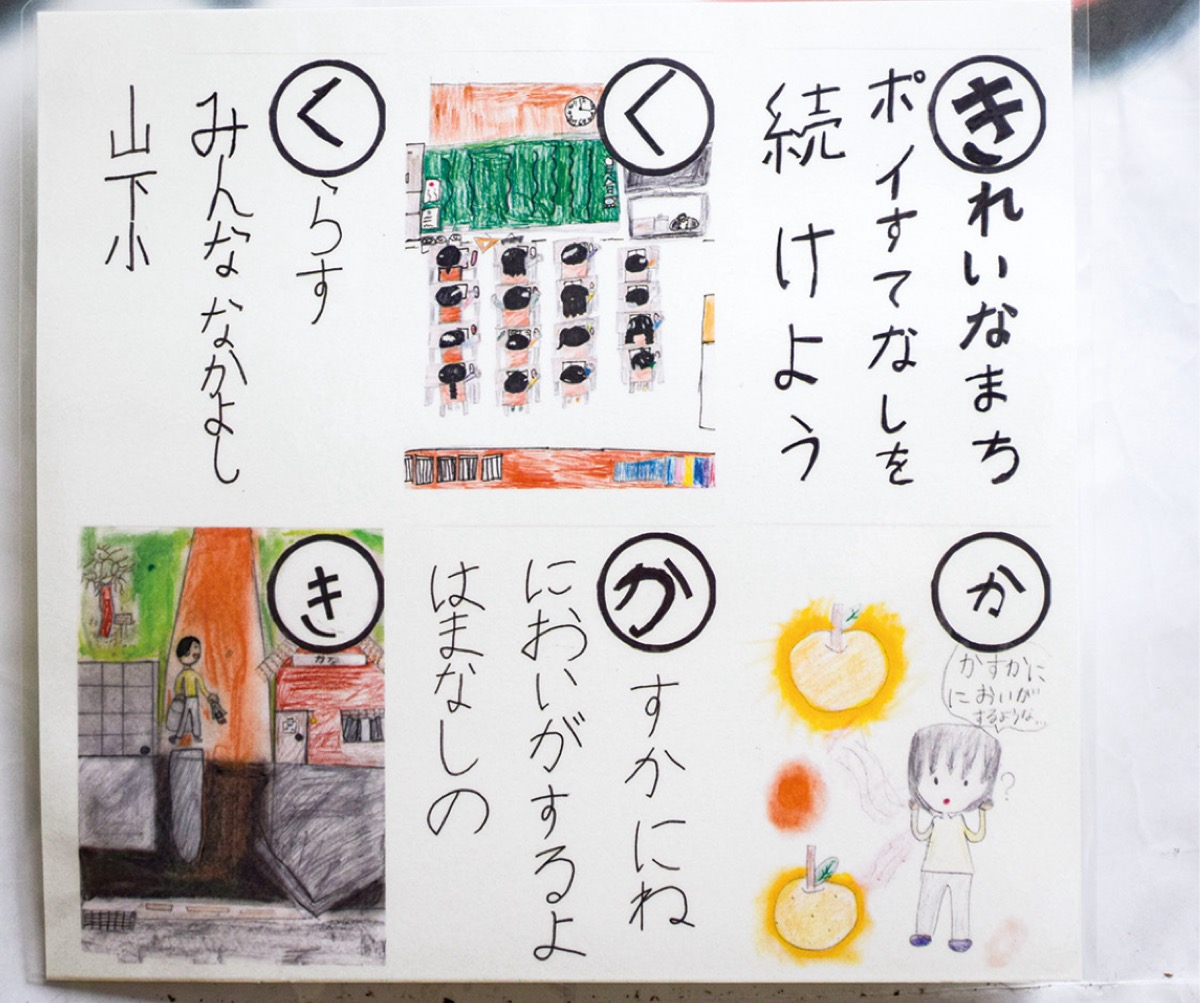 きれいなまち
ポイすてなしを
続けよう
く
くらす
みんななかよし
山下小
か
かすかに
においが
するような…
?
かすかにね
においがするよ
はまなしの
き